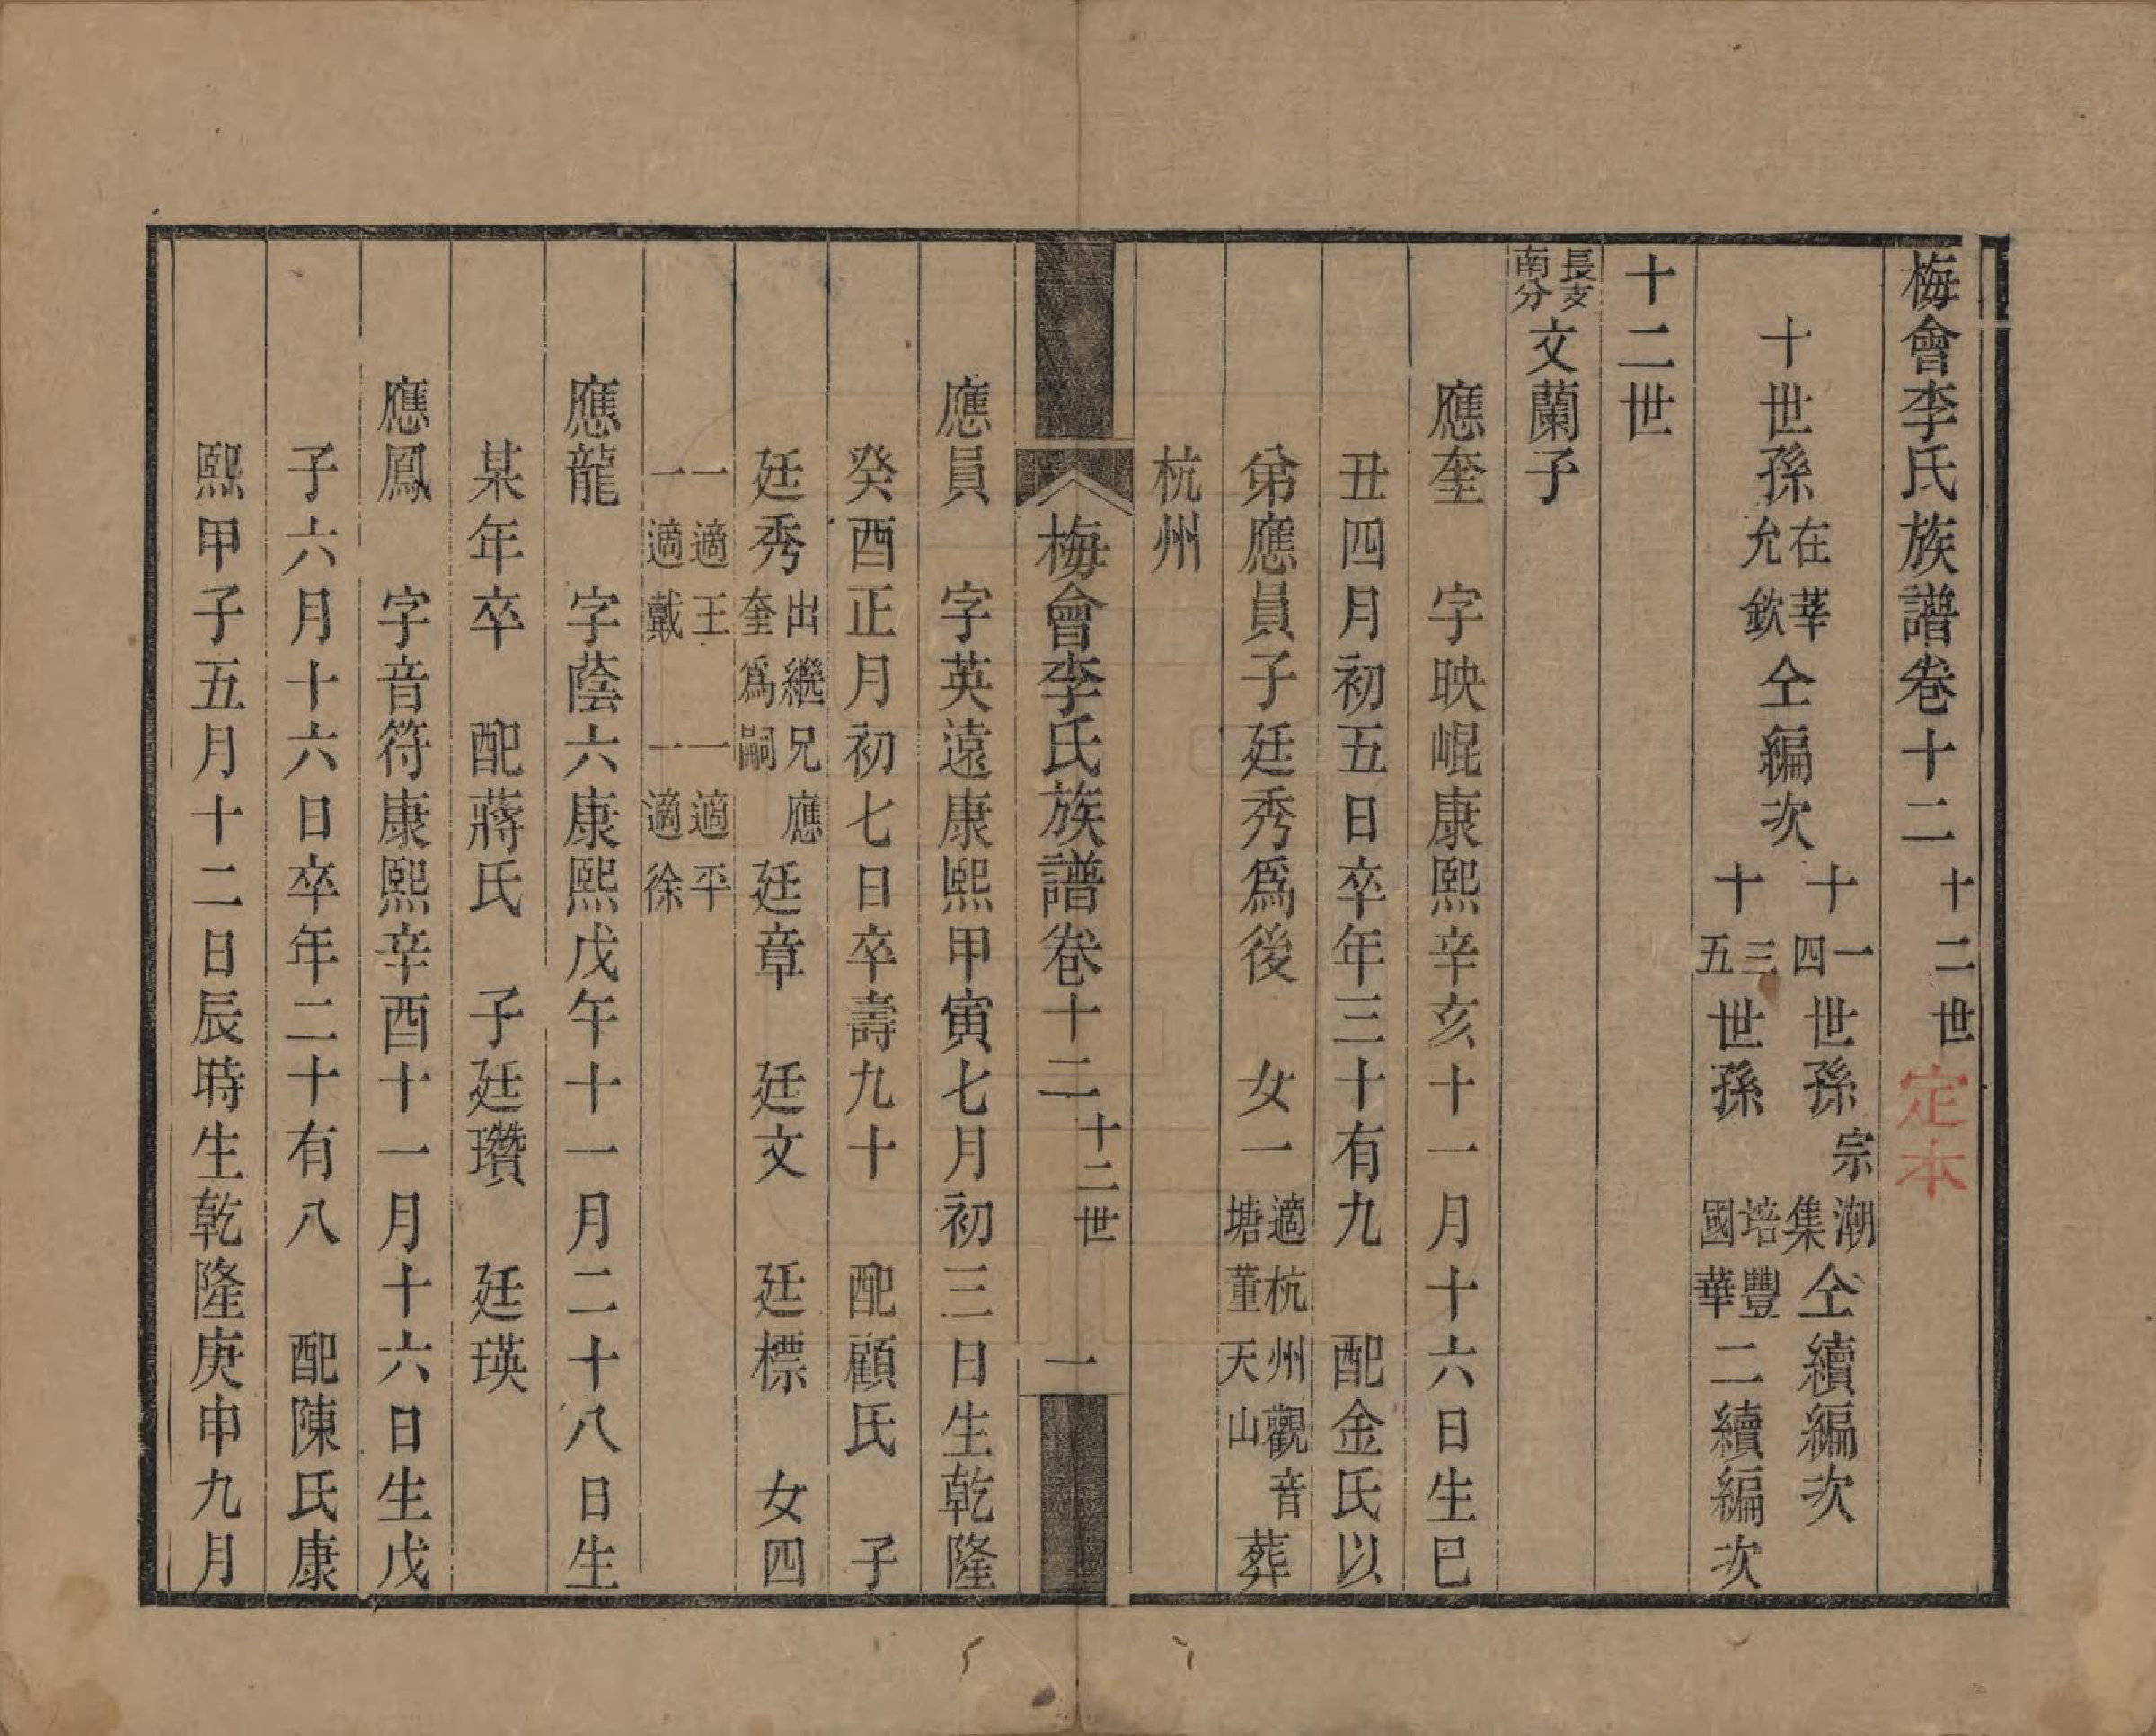 梅會李氏族譜卷十二 十二世 定本
十世孫在莘允欽仝編次 十一四世孫宗潮集仝續編次 十三五世孫培豐國華二續編次
十二世
長支南分文蘭子
應奎 字映崐康熙辛亥十一月十六日生巳
丑四月初五日卒年三十有九 配金氏以
弟應員子廷秀爲後 女一適杭州觀音塘董天山 葬
杭州
梅會李氏族譜卷十二 十二世 一
應員 字英遠康熙甲寅七月初三日生乾隆
癸酉正月初七日卒壽九十 配顧氏 子
廷秀出繼兄應奎爲嗣 廷章 廷文 廷標 女四
一適王 一適平 一適戴 一適徐
應龍 字蔭六康熙戊午十一月二十八日生
某年卒 配蔣氏 子廷瓚 廷瑛
應鳳 字音符康熙辛酉十一月十六日生戊
子六月十六日卒年二十有八 配陳氏康
熙甲子五月十二日辰時生乾隆庚申九月